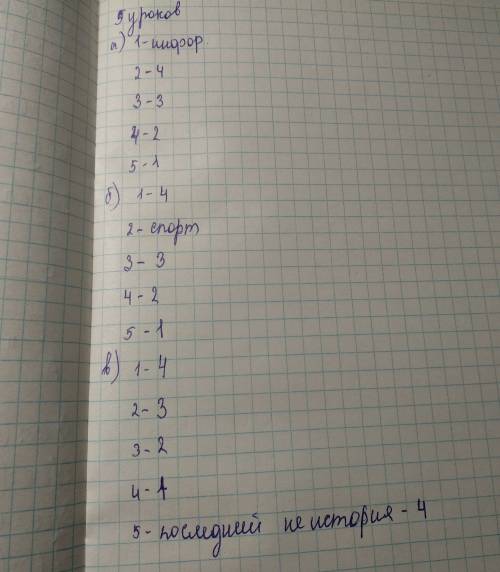 5 уроков
а) 1-инфор.
2-4
3-3
4-2
5-1
б) 1-4
2-спорт
3-3
4-2
5-1
в) 1-4
2-3
3-2
4-1
5-последней не история-4